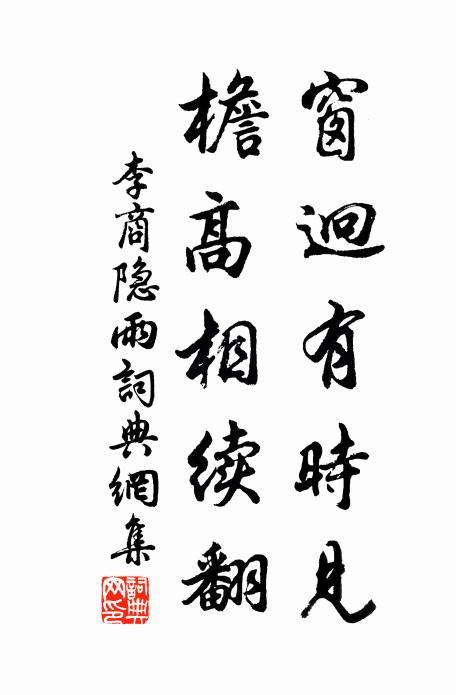 窗迥有時見
檐高相续翻
李商隐雨詞典網集
詞典网印